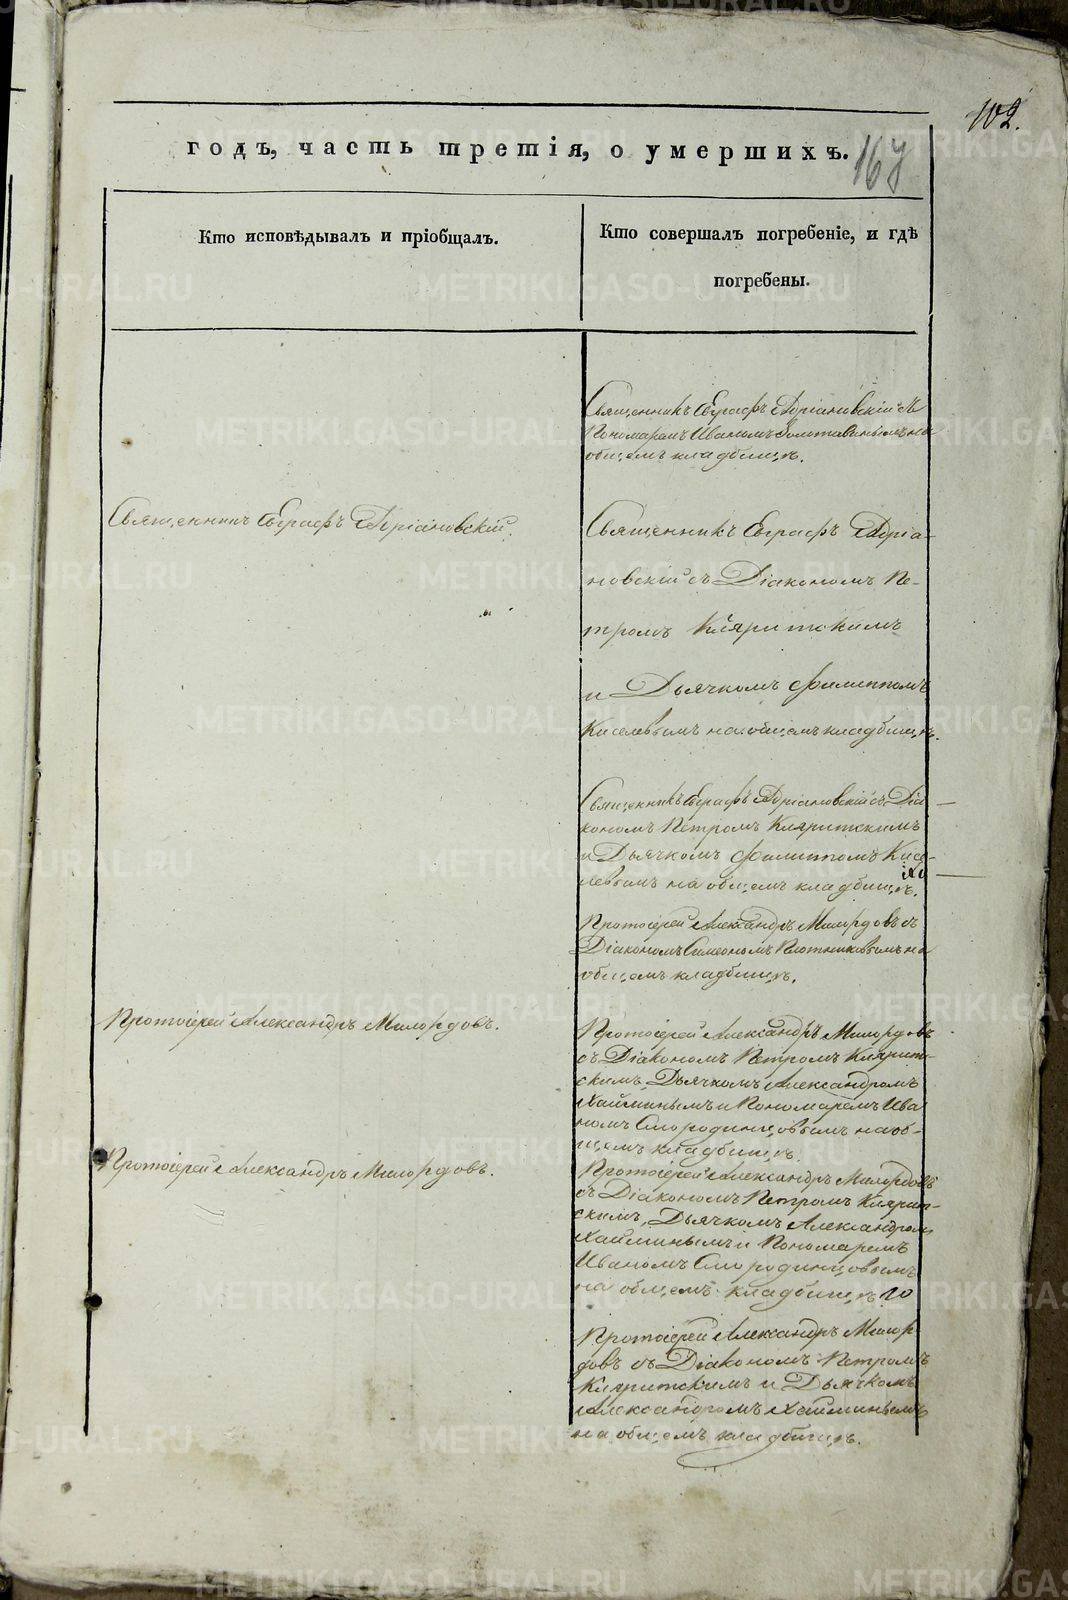 102.
годъ, часть третія, о умершихъ.
167
Кто исповѣдывалъ и пріобщалъ.
Кто совершалъ погребеніе, и гдѣ
погребены.
Священникъ Евграфъ Адріановскій съ
Пономаремъ Иваномъ Золотавинымъ на
общемъ кладбищѣ.
Священникъ Евграфъ Адріановскій.
Священникъ Евграфъ Адріа-
новскій съ Діакономъ Пе-
тромъ Кляритскимъ
и Дьячкомъ Филиппомъ
Киселевымъ на общемъ кладбищѣ.
Священникъ Евграфъ Адріановскій съ Діа
кономъ Петромъ Кляритскимъ
и Дьячкомъ Филиппомъ Кисе-
левымъ на общемъ кладбищѣ.
Протоіерей Александръ Милордовъ съ
Діакономъ Симеономъ Плотниковымъ на
общемъ кладбищѣ.
Протоіерей Александръ Милордовъ.
Протоіерей Александръ Милордовъ
съ Діакономъ ПетромъКлярит-
скимъ, Дьячкомъ Александромъ
Хайминымъ и Пономаремъ Ива
номъ Смородинцовымъ на об-
щемъ кладбищѣ.
Протоіерей Александръ Милордовъ.
Протоіерей Александръ Милордовъ
съ Діакономъ Петромъ Клярит-
скимъ, Дьячкомъ Александромъ
Хайминымъ и Пономаремъ
Иваномъ Смородинцовымъ
на общемъ кладбищѣ
Протоіерей Александръ Милор
довъ съ Діакономъ Петромъ
Кляритскимъ и Дьячкомъ
Александромъ Хайминымъ
на общемъ кладбищѣ.
METRIKI.GASO-URAL.RU